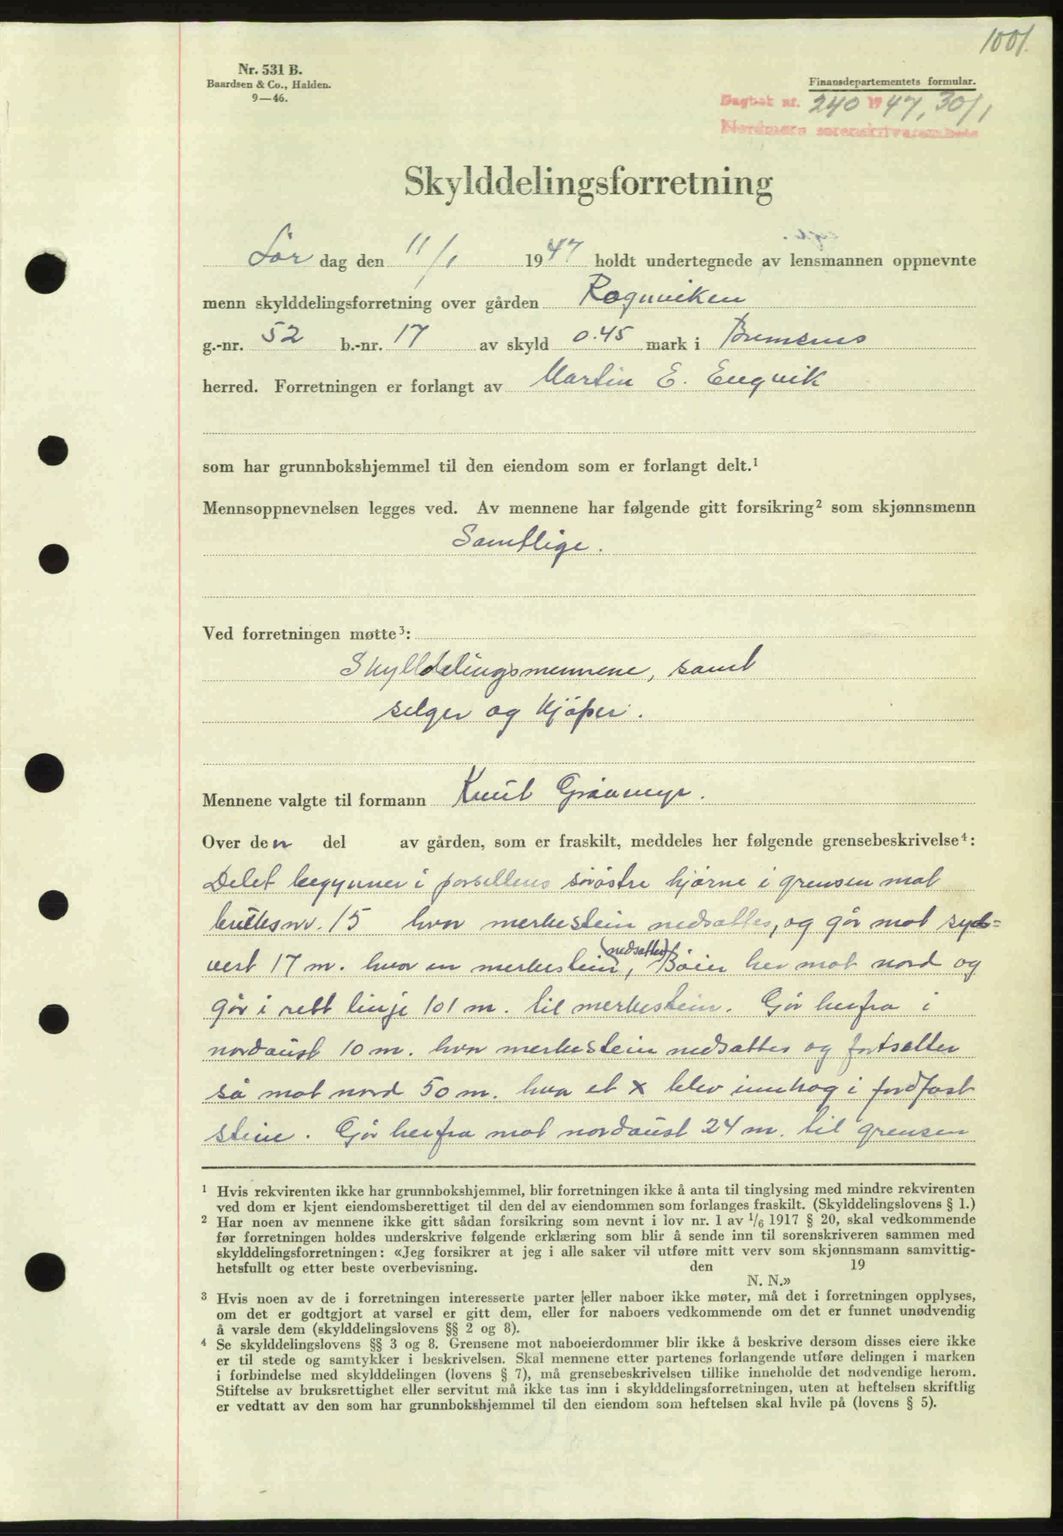 1001.
Nr. 531 B.
Baardsen & Co., Halden.
9—46.
Finansdepartementets formular.
Dagbok nr. 240 19 47, 30/1
Nordmøre sorenskriverembete
Skylddelingsforretning
Lør dag den 11/1 1947 holdt undertegnede av lensmannen oppnevnte
menn skylddelingsforretning over gården Rognviken
g.-nr. 52 b.-nr. 17 av skyld 0.45 mark i Bremsnes
herred. Forretningen er forlangt av Martin E. Engvik
som har grunnbokshjemmel til den eiendom som er forlangt delt.¹
Mennsoppnevnelsen legges ved. Av mennene har følgende gitt forsikring² som skjønnsmenn
Samtlige.
Ved forretningen møtte³:
Skylldelingsmennene, samt
selger og kjøper.
Mennene valgte til formann Knut Gråmyr.
Over den del av gården, som er fraskilt, meddeles her følgende grensebeskrivelse⁴:
Delet begynner i parsellens sørøstre hjørne i grensen mot
bruksnr. 15 hvor merkestein nedsattes, og går mot syd-
vest 17 m. hvor en merkestein nedsattes, Bøier her mot nord og
går i rett linje 101 m. til merkestein. Går herfra i
nordaust 10 m. hvor merkestein nedsattes og fortsetter
så mot nord 50 m. hvor et x blev innhog i jordfast
stein. Går herfra mot nordaust 24 m. til grensen
¹ Hvis rekvirenten ikke har grunnbokshjemmel, blir forretningen ikke å anta til tinglysing med mindre rekvirenten
ved dom er kjent eiendomsberettiget til den del av eiendommen som forlanges fraskilt. (Skylddelingslovens § 1.)
² Har noen av mennene ikke gitt sådan forsikring som nevnt i lov nr. 1 av 1/6 1917 § 20, skal vedkommende
før forretningen holdes underskrive følgende erklæring som blir å sende inn til sorenskriveren sammen med
skylddelingsforretningen: «Jeg forsikrer at jeg i alle saker vil utføre mitt verv som skjønnsmann samvittig-
hetsfullt og etter beste overbevisning. den 19
N. N.»
³ Hvis noen av de i forretningen interesserte parter eller naboer ikke møter, må det i forretningen opplyses,
om det er godtgjort at varsel er gitt dem, eller for naboers vedkommende om det er funnet unødvendig
å varsle dem (skylddelingslovens §§ 2 og 8).
⁴ Se skylddelingslovens §§ 3 og 8. Grensene mot naboeierdommer blir ikke å beskrive dersom disses eiere ikke
er til stede og samtykker i beskrivelsen. Skal mennene etter partenes forlangende utføre delingen i marken
i forbindelse med skylddelingen (lovens § 7), må grensebeskrivelsen tillike inneholde det nødvendige herom.
Stiftelse av bruksrettighet eller servitut må ikke tas inn i skylddelingsforretningen, uten at heftelsen skriftlig
er vedtatt av den som har grunnbokshjemmel til den eiendom som heftelsen skal hvile på (lovens § 5).